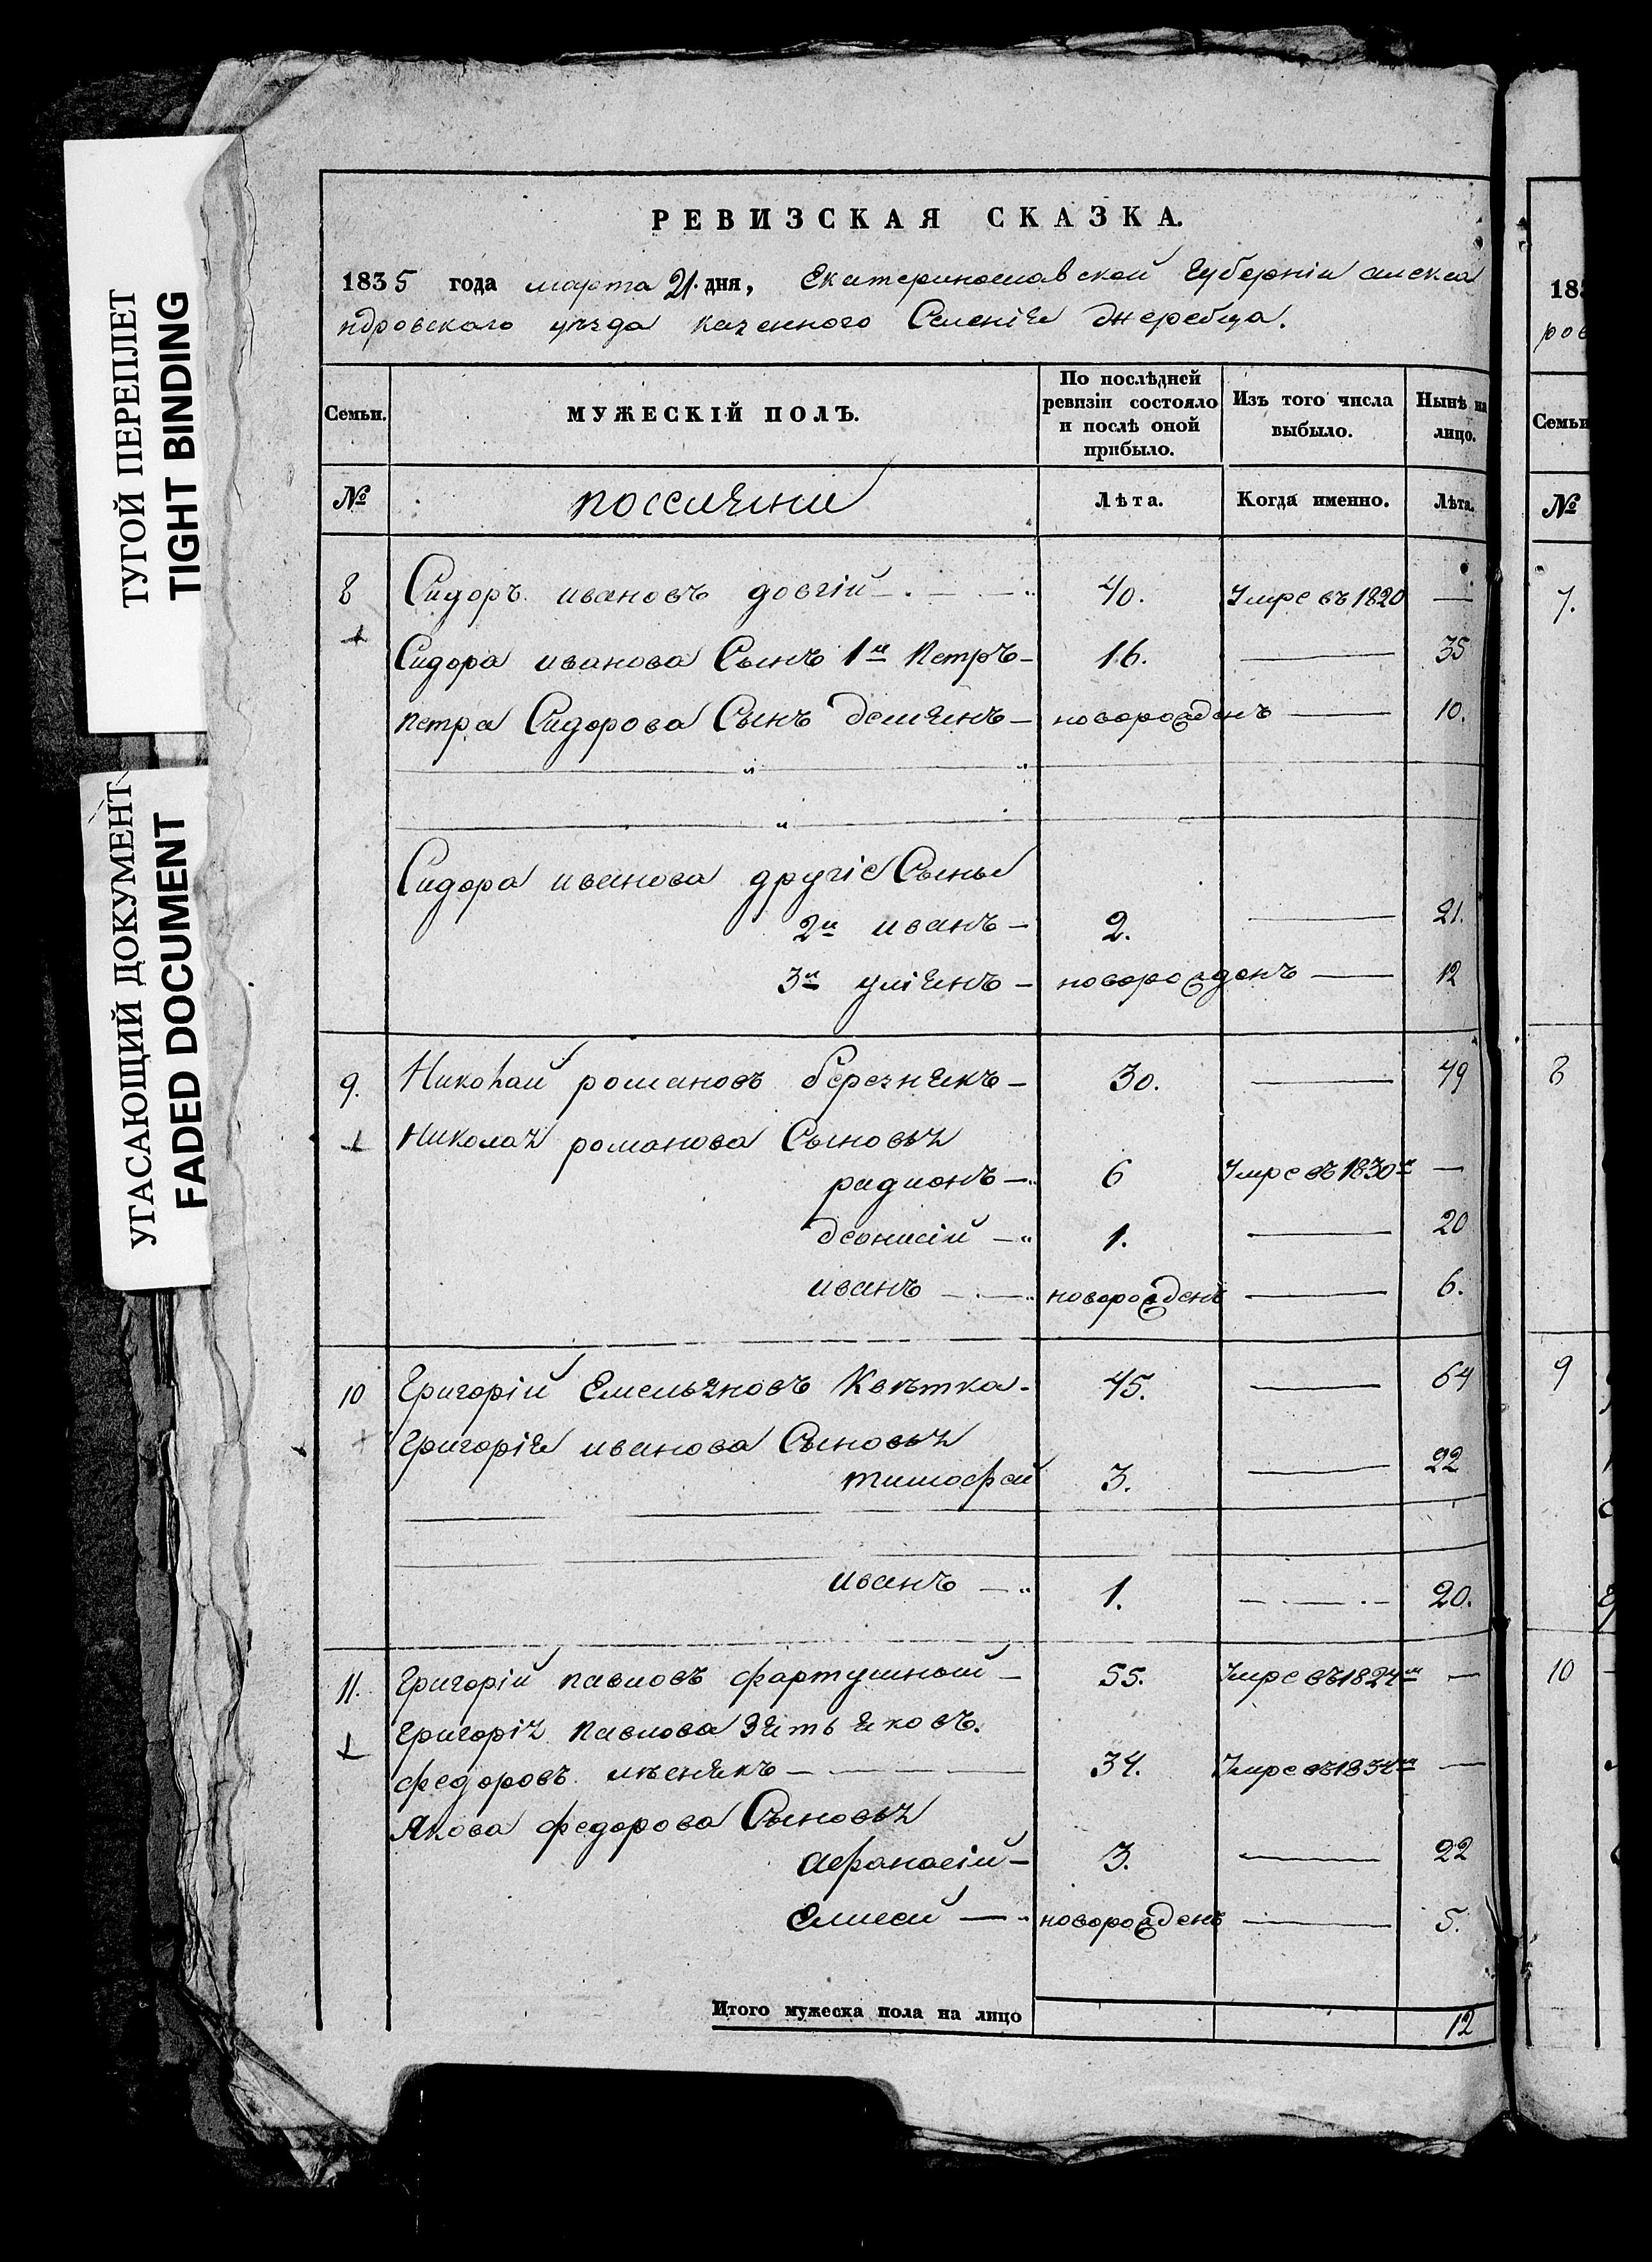 ТУГОЙ ПЕРЕПЛЕТ
TIGHT BINDING
УГАСАЮЩИЙ ДОКУМЕНТ
FADED DOCUMENT
РЕВИЗСКАЯ СКАЗКА.
1835 года марта 21. дня, Екатеринославской губернiи алекса
ндровскаго уѣзда казенного Селенiя Жеребца.
Семьи. МУЖЕСКІЙ ПОЛЪ. По послѣдней ревизіи состояло и послѣ оной прибыло. Изъ того числа выбыло. Нынѣ на лицо.
№ Лѣта. Когда именно. Лѣта.
8 Сидоръ ивановъ довгiй 40. Умре въ 1820 —
Сидора иванова Сынъ 1й петръ 16. — 35
петра Сидорова Сынъ демянъ новорожденъ — 10.
Сидора иванова другiе Сыны
2й иванъ 2. — 21.
3й улiянъ новорожденъ — 12
9. Николай романовъ березнякъ 30. — 49
Николая романова Сыновья
радионъ 6 Умре въ 1830м —
деонисiй 1. — 20
иванъ новорожденъ — 6.
10 Григорiй Емельяновъ Квѣтка 45. — 64
Григорiя иванова Сыновья
тимофей 3. — 22
иванъ 1. — 20.
11. Григорiй павловъ фартушный 55. Умре въ 1824м —
Григорiя павлова Зять яковъ.
федоровъ 34. Умре въ 1834м —
Якова федорова Сыновья
афанасiй 3. — 22
Елисей новорожденъ — 5.
Итого мужеска пола на лицо 12
183
ров
Семьи
№
7.
8
9
10